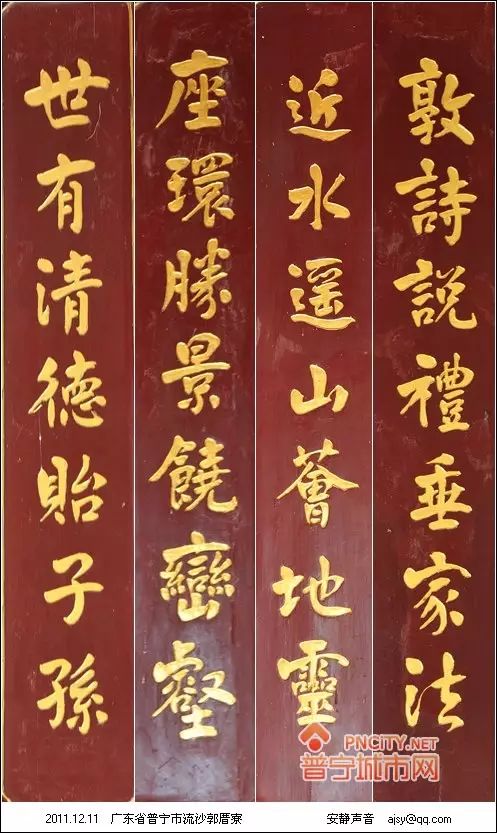 敦詩説禮垂家法
近水遥山薈地靈
座環勝景饒巒壑
世有清德貽子孫
PNCITY.NET
普宁城市网
2011.12.11 广东省普宁市流沙郭厝寮 安静声音 ajsy@qq.com